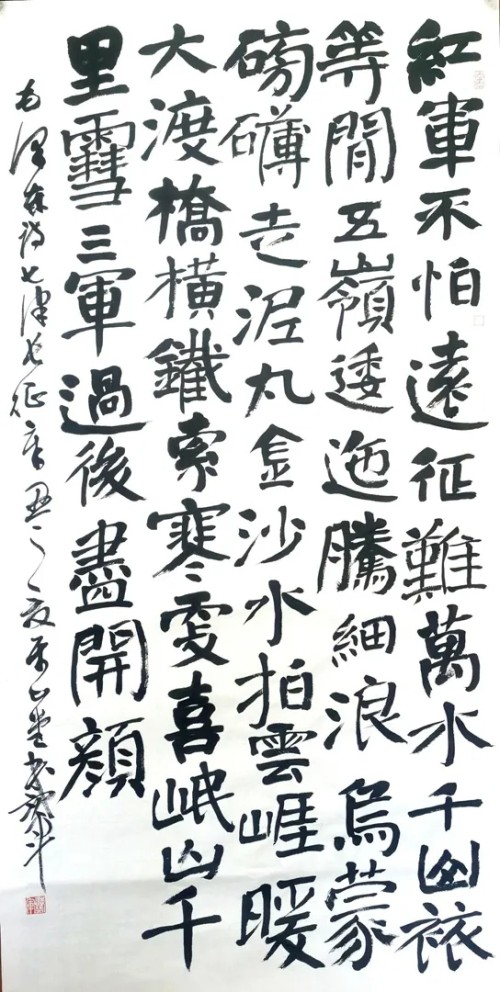 紅軍不怕遠征難萬水千山衹
等閒五嶺逶迤騰細浪烏蒙
磅礴走泥丸金沙水拍雲崕暖
大渡橋橫鐵索寒更喜岷山千
里雪三軍過後盡開顏
毛澤東詩七律長征辛丑之夏